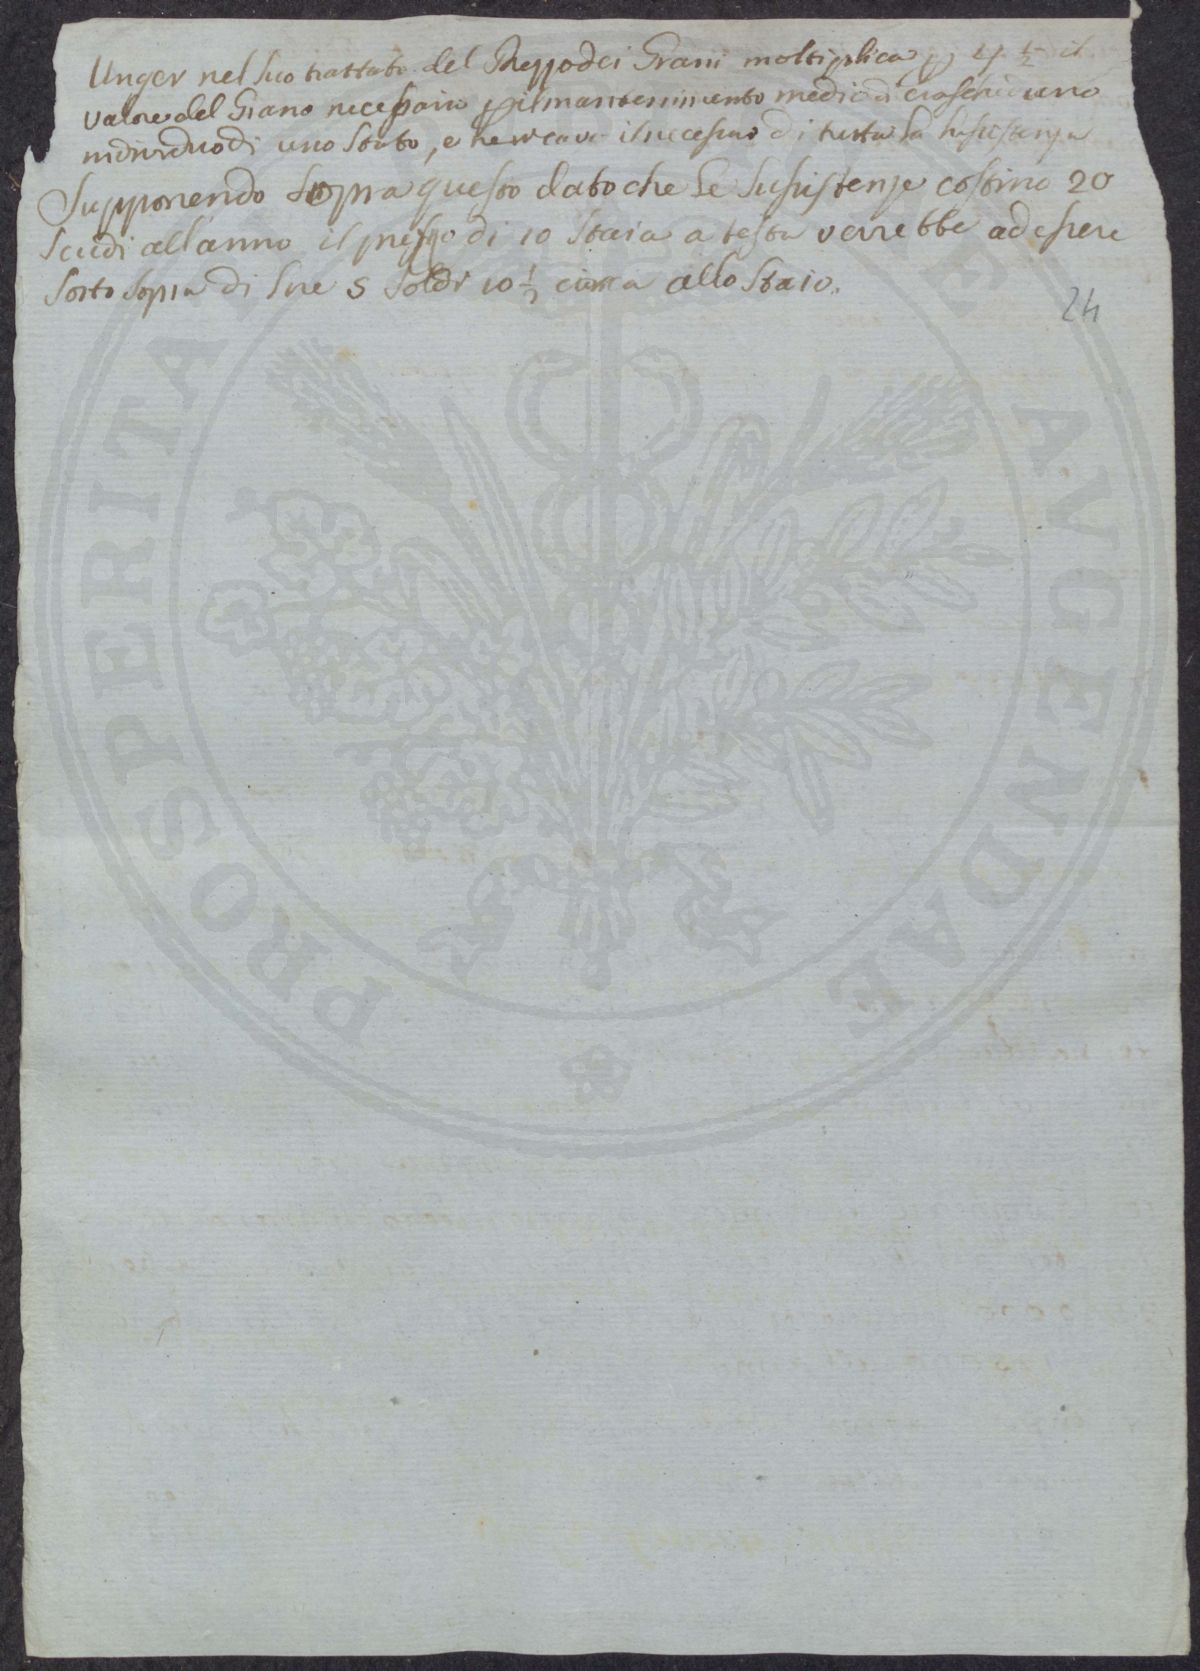 Unger nel suo trattato del Prezzo dei Grani moltiplica p 4 ½ il
valore del Grano necessario p il mantenimento medio di ciascheduno
individuo di uno Stato, e ne ricava il necessario di tutta la sussistenza
Supponendo sopra questo dato che le sussistenze costino 20
scudi all'anno il prezzo di 10 staia a testa verrebbe ad essere
sotto sopra di lire 5 soldi 10 ½ circa allo staio.
24
PROSPERITATI AVGENDAE